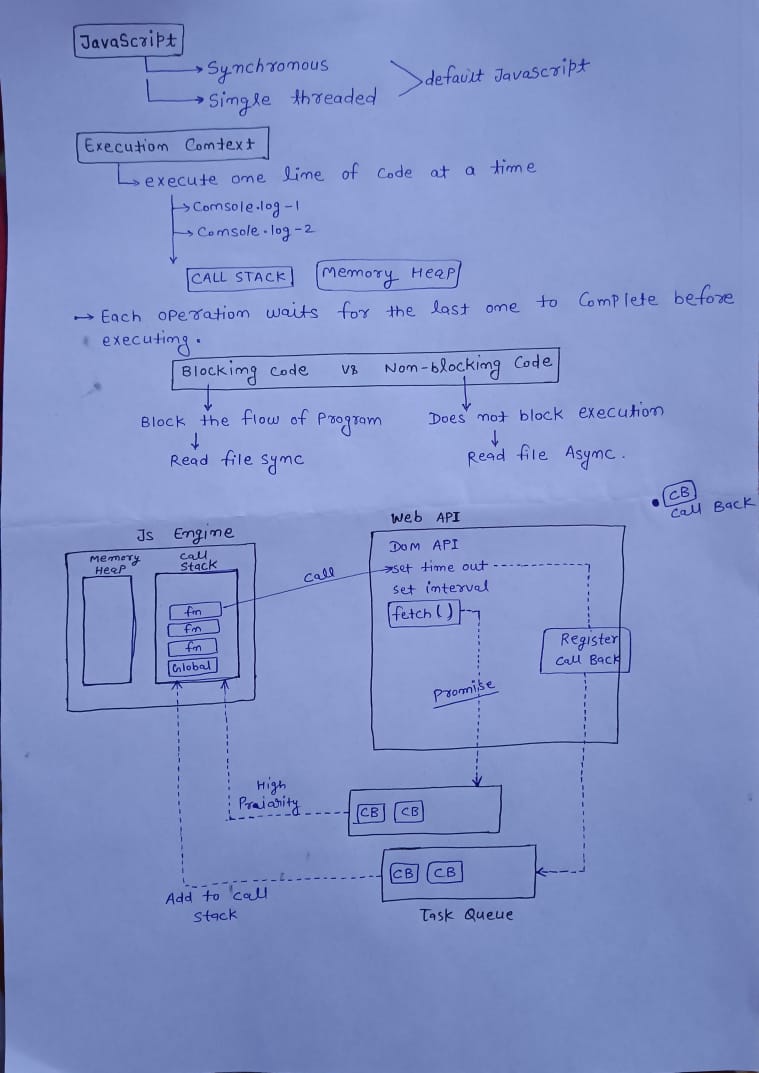 JavaScript
Synchronous
Single threaded
default Javascript
Execution Comtext
execute one line of code at a time
Comsole.log-1
Comsole.log-2
CALL STACK
Memory Heap
→ Each operation waits for the last one to Complete before
executing.
Blocking code vs Non-blocking Code
Block the flow of Program
Does not block execution
Read file sync
Read file Async.
CB
Call Back
Js Engine
Memory
Heap
Call
Stack
fn
fn
fn
Global
Call
Web API
DOM API
set time out
set interval
fetch()
Register
Call Back
Promise
High
Praiarity
CB CB
CB CB
Add to call
Stack
Task Queue